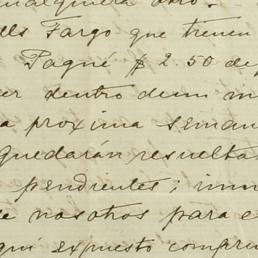 cualquiera otro.
lls Fargo que tienen
Pagué $ 2.50 de
er dentro de un m
a proxima seman
quedarán resuelta
pendientes; inm
e nosotros para e
quí expuesto compren